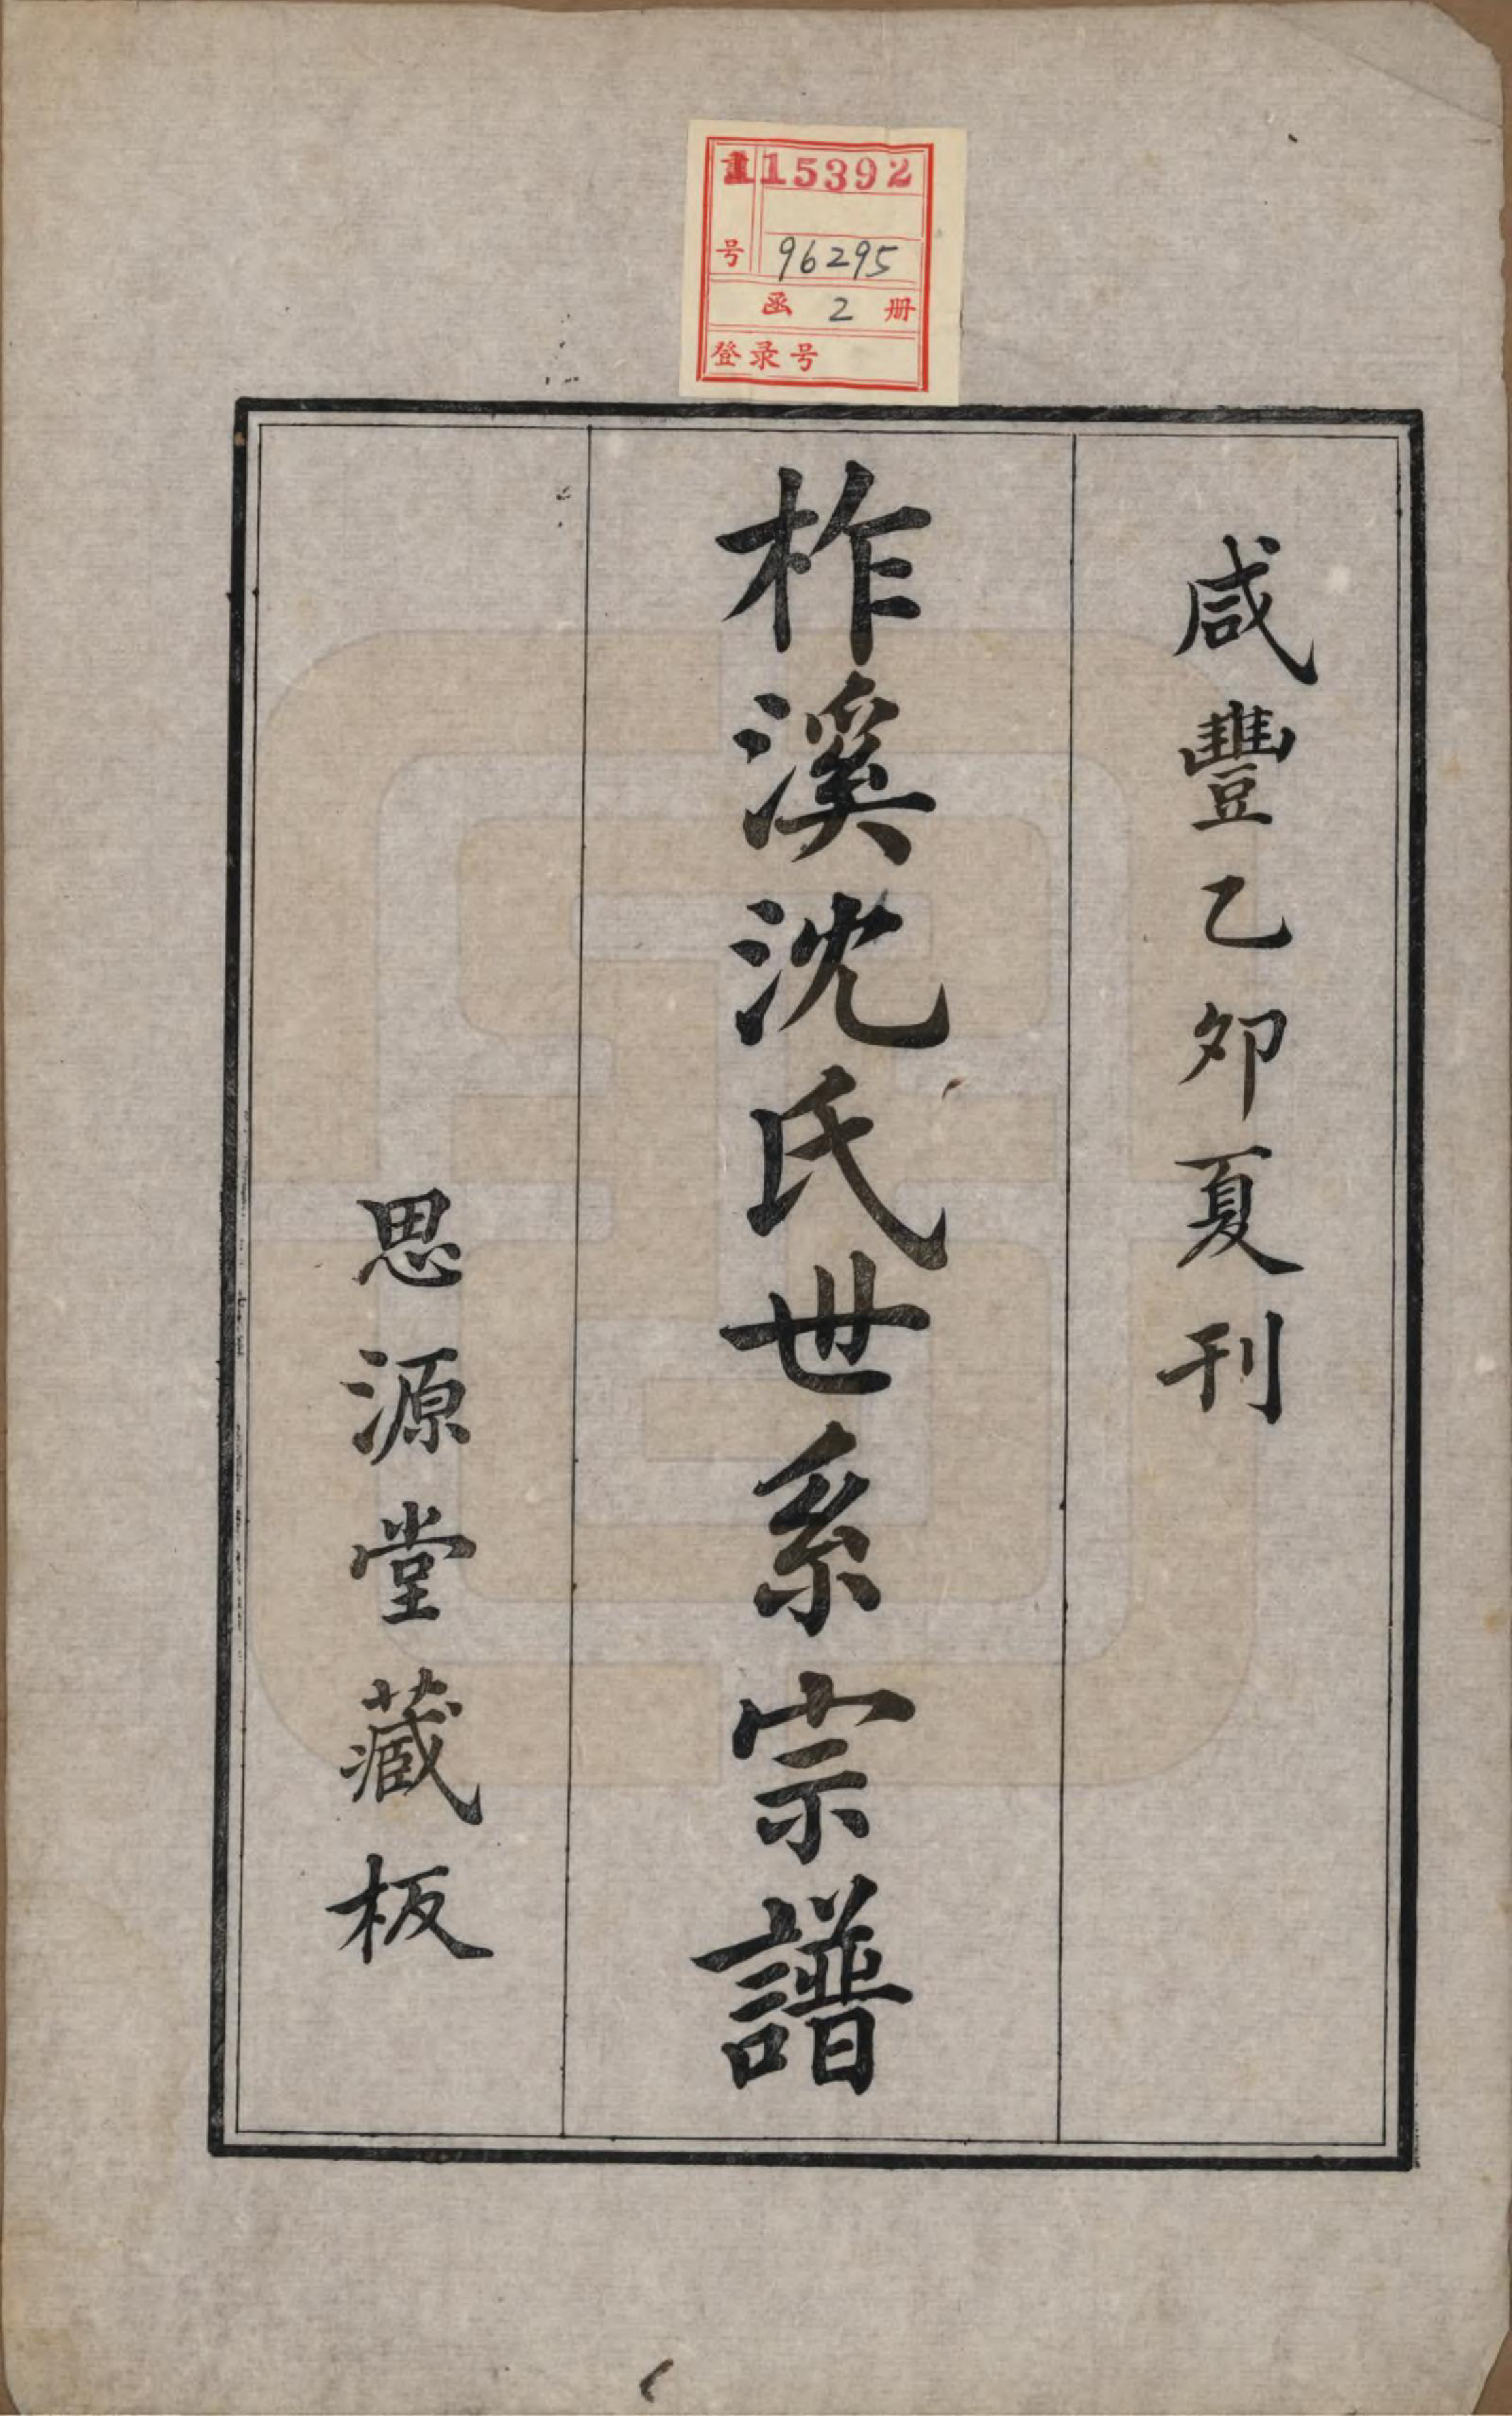 115392
号 96295
函 2 册
登录号
咸豐乙卯夏刊
柞溪沈氏世系宗譜
思源堂藏板